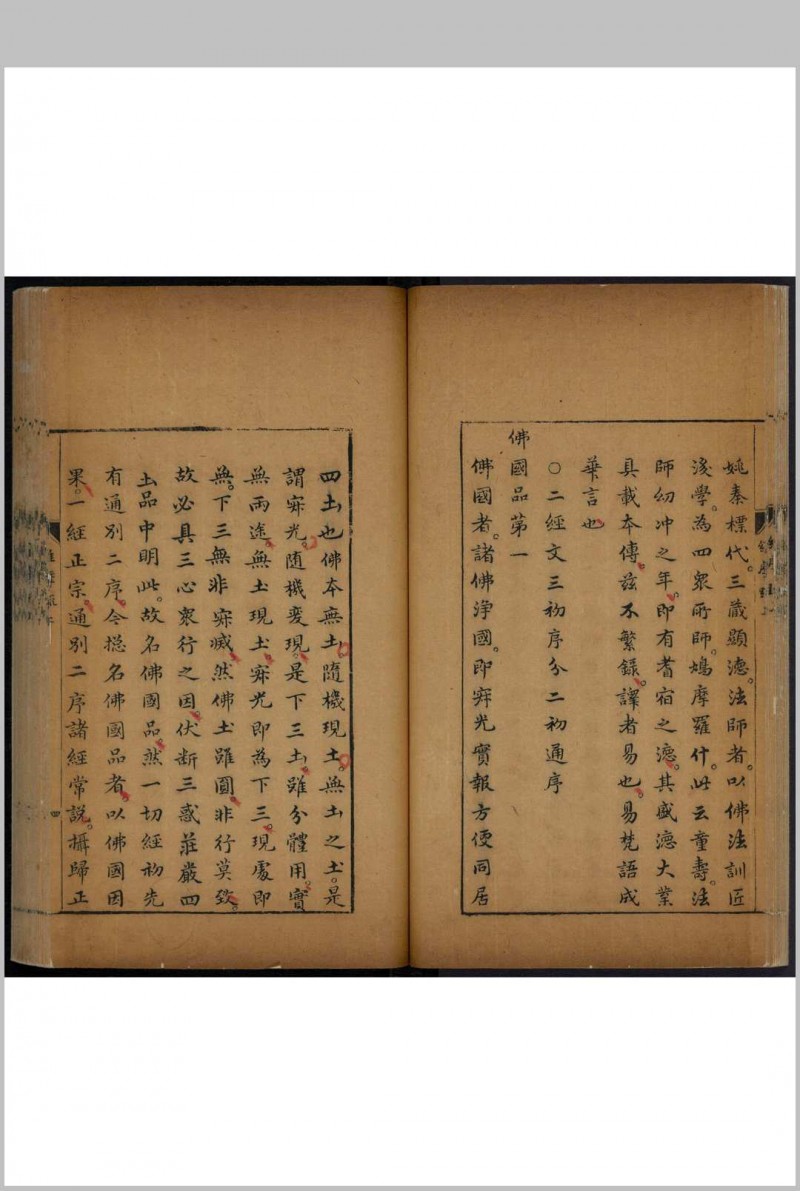 姚秦標代。三藏顯德。法師者。以佛法訓匠
後學。為四衆所師。鳩摩羅什。此云童壽。法
師幼冲之年。即有耆宿之德。其盛德大業
具載本傳。茲不繁錄。譯者易也。易梵語成
華言也
○二經文三初序分二初通序
佛國品第一
佛國者。諸佛淨國。即寂光實報方便同居
四土也佛本無土隨機現土。無土之土。是
謂寂光。隨機變現。是下三土。雖分體用。實
無兩途。無土現土。寂光即為下三。現處即
無。下三無非寂滅。然佛土雖圓。非行莫致。
故必具三心衆行之因。伏断三惑莊嚴四
土品中明此。故名佛國品。然一切經初先
有通別二序。今揔名佛國品者。以佛國因
果。一經正宗。通別二序諸經常說。攝歸正
四